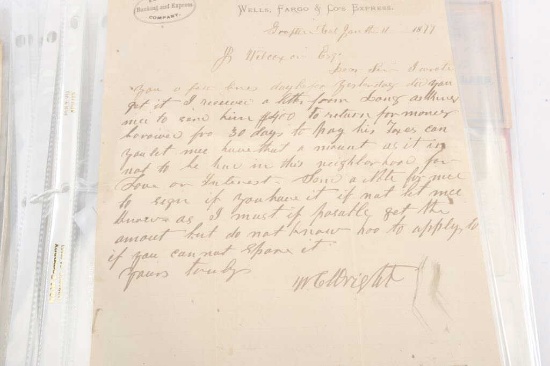 Banking and Express
COMPANY.
WELLS, FARGO & CO'S EXPRESS.
Jan 1877
J Wilcoxon Esq
Dear Sir I wrote
you a few lines day before yesterday did you
get it I receive a letter from Long asking
mee to send him $400 to return for money
borrowed fro 30 days to Pay his Taxes can
you let mee have that a mount as it is
not to be had in this neighborhood for
Love or Interest Send a note for mee
to sign if you have it if not let mee
know as I must if posable get the
amount but do not know hoo to apply to
if you can not spare it
Yours truly
W C Wright